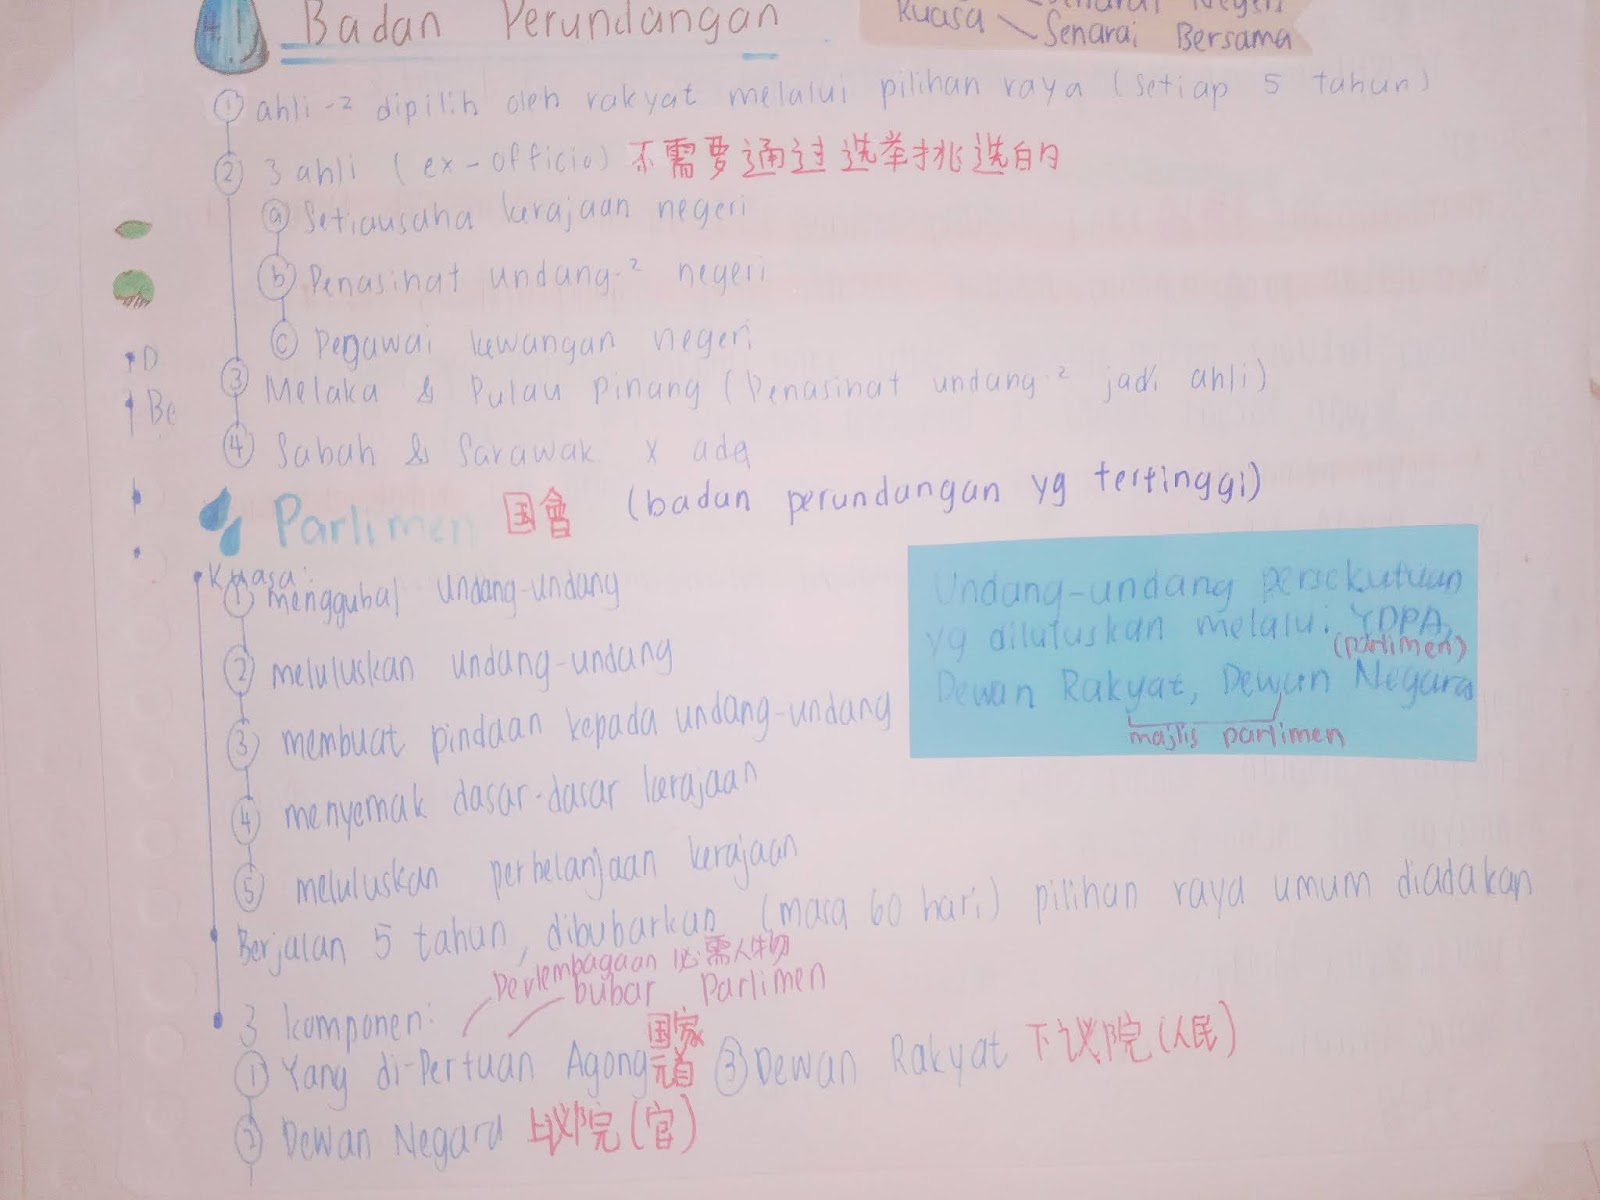 4.1 Badan Perundangan
Kuasa Senarai Negeri
Senarai Bersama
① ahli-² dipilih oleh rakyat melalui pilihan raya (setiap 5 tahun)
② 3 ahli (ex-officio) 不需要通过选举挑选的
ⓐ Setiausaha kerajaan negeri
ⓑ Penasihat undang-² negeri
ⓒ Pegawai kewangan negeri
③ Melaka & Pulau Pinang (Penasihat undang-² jadi ahli)
④ Sabah & Sarawak x ada
D
Be
Parlimen 国會 (badan perundangan yg tertinggi)
Kuasa:
① menggubal undang-undang
② meluluskan undang-undang
③ membuat pindaan kepada undang-undang
④ menyemak dasar-dasar kerajaan
⑤ meluluskan perbelanjaan kerajaan
Undang-undang persekutuan
yg diluluskan melalui YDPA,
(parlimen)
Dewan Rakyat, Dewan Negara
majlis parlimen
Berjalan 5 tahun, dibubarkan (masa 60 hari) pilihan raya umum diadakan
Perlembagaan 必需人物
bubar Parlimen
3 komponen:
① Yang di-Pertuan Agong 国家元首 ③ Dewan Rakyat 下议院(人民)
② Dewan Negara 上议院(官)